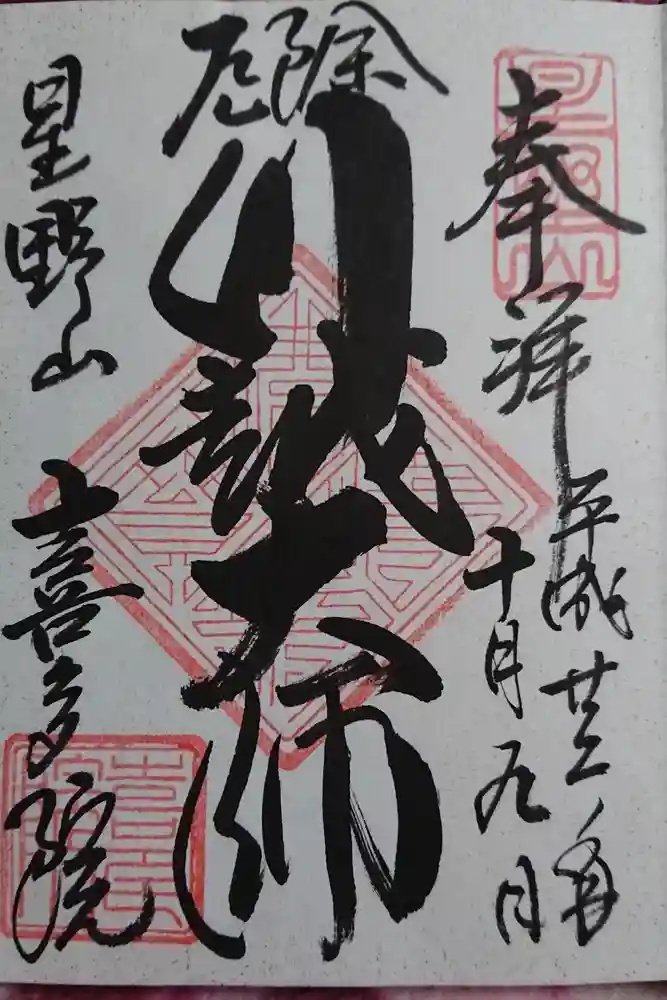 奉拝
平成廿年
十月九日
厄除
川越大師
星野山
喜多院